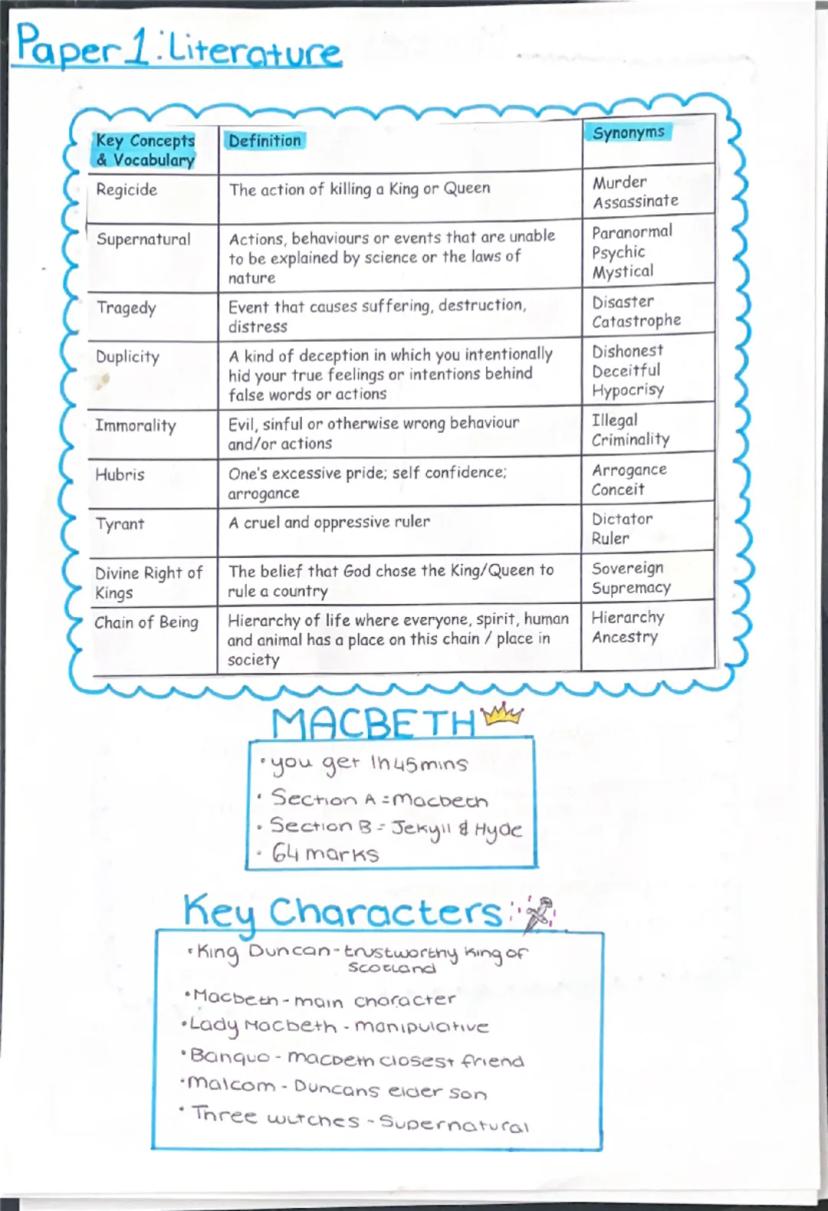 Paper 1: Literature
Key Concepts
& Vocabulary
Definition
Synonyms
Regicide
The action of killing a King or Queen
Murder
Assassinate
Supernatural
Actions, behaviours or events that are unable
to be explained by science or the laws of
nature
Paranormal
Psychic
Mystical
Tragedy
Event that causes suffering, destruction,
distress
Disaster
Catastrophe
Duplicity
A kind of deception in which you intentionally
hid your true feelings or intentions behind
false words or actions
Dishonest
Deceitful
Hypocrisy
Immorality
Evil, sinful or otherwise wrong behaviour
and/or actions
Illegal
Criminality
Hubris
One's excessive pride; self confidence;
arrogance
Arrogance
Conceit
Tyrant
A cruel and oppressive ruler
Dictator
Ruler
Divine Right of
Kings
The belief that God chose the King/Queen to
rule a country
Sovereign
Supremacy
Chain of Being
Hierarchy of life where everyone, spirit, human
and animal has a place on this chain / place in
society
Hierarchy
Ancestry
MACBETH
• you get 1h45mins
• Section A = Macbeth
• Section B = Jekyll & Hyde
• 64 marks
Key Characters
• King Duncan - trustworthy king of
Scotland
• Macbeth - main character
• Lady Macbeth - manipulative
• Banquo - macbeth closest friend
• Malcom - Duncans elder son
• Three witches - Supernatural